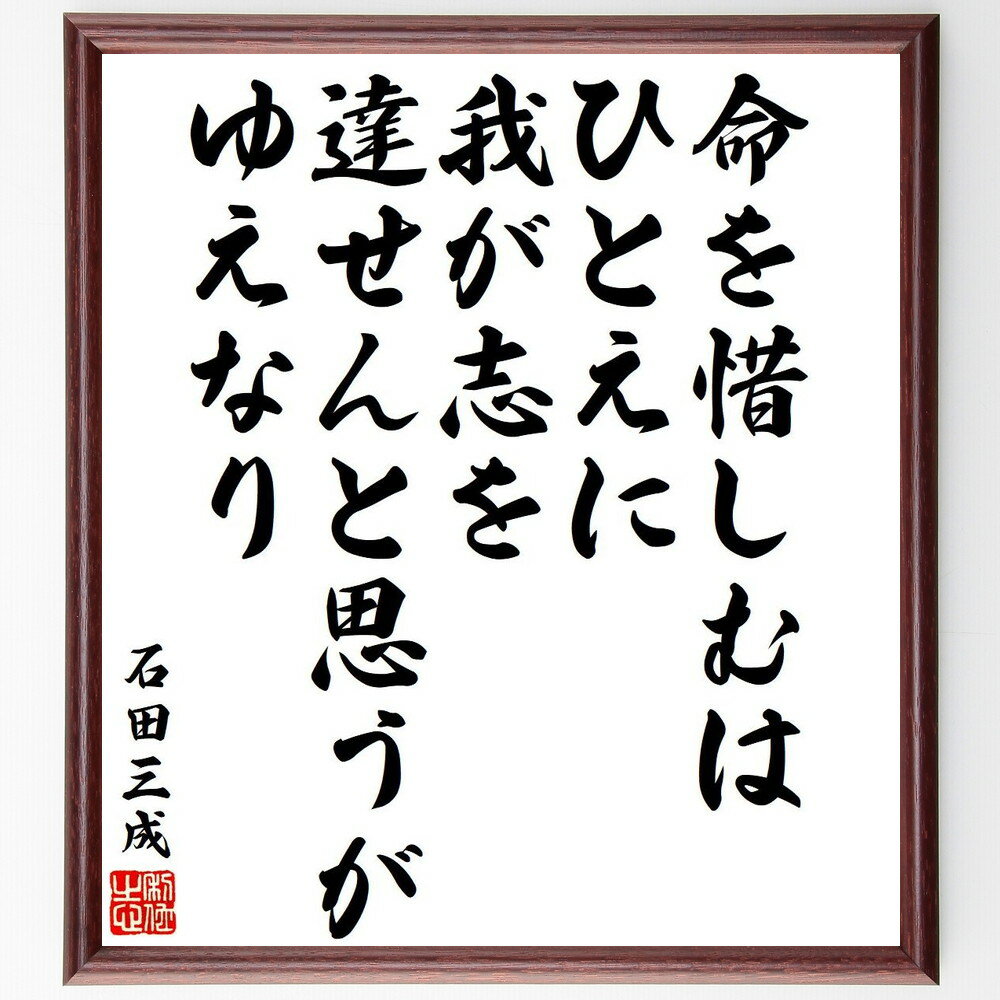 命を惜しむは
ひとえに
我が志を
達せんと思うが
ゆえなり
石田三成